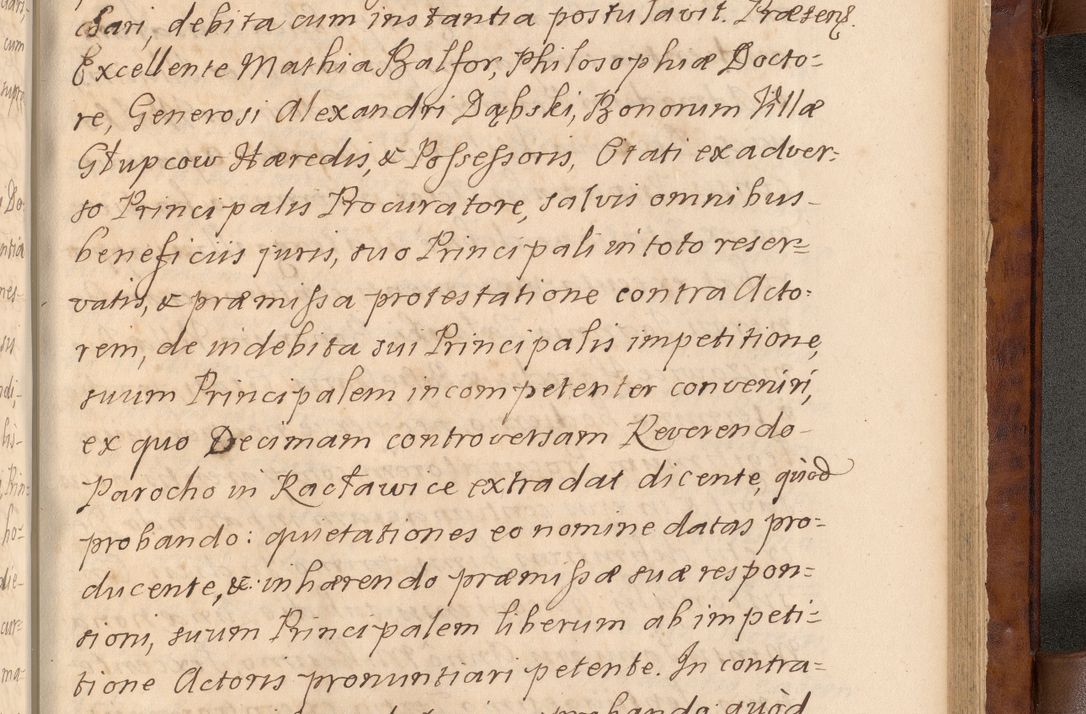 sari, debita cum instantia postulavit. Præsentę
Excellente Mathia Balfor, Philosophiæ Docto=
re, Generosi Alexandri Dąbski, Bonorum Villæ
Głupcow Hæredis, & Possessoris, Citati ex adver=
so Principalis Procuratore, salvis omnibus
beneficiis juris, suo Principali in toto reser=
vatis, & præmissa protestatione contra Acto=
rem, de indebita sui Principalis impetitione,
suum Principalem incompetenter conveniri,
ex quo Decimam controversam Reverendo
Parocho in Racławice extradat dicente, quod
probando: quietationes eo nomine datas pro=
ducente, & inhærendo præmissæ suæ respon=
sioni, suum Principalem liberum ab impeti=
tione Actoris pronuntiari petente. In contra=
probando quòd
cum
supre
Do=
ntia
nes
su
ndi,
lis
Prin=
ho=
die
cur=
ma=